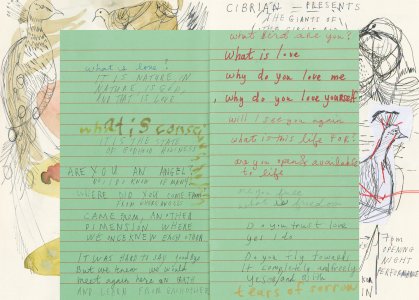 CIBRIAN — PRESENTS
THE GIANTS OF
what Bird are you?
what is love?
IT IS NATURE, IN
NATURE IS GOD,
AND THAT IS LOVE
what is consci
IT IS THE STATE
OF
ARE YOU AN ANGEL?
WHERE DID YOU COME FROM
CAME FROM ANOTHER
DIMENSION WHERE
WE ONCE KNEW EACH OTHER
IT WAS HARD TO SAY Goodbye
But we knew we would
meet again here on EARTH
AND LEARN FROM EACHOTHER
What is love
why do you love me
why do you love yourself
will I see you again
what is this life FOR?
are you open & available
to life
are you free
what is freedom
Do you trust love
yes I do
Do you fly towards
it completely and freely
tears of sorrow
7pm
OPENING
NIGHT
PERFORMANCE